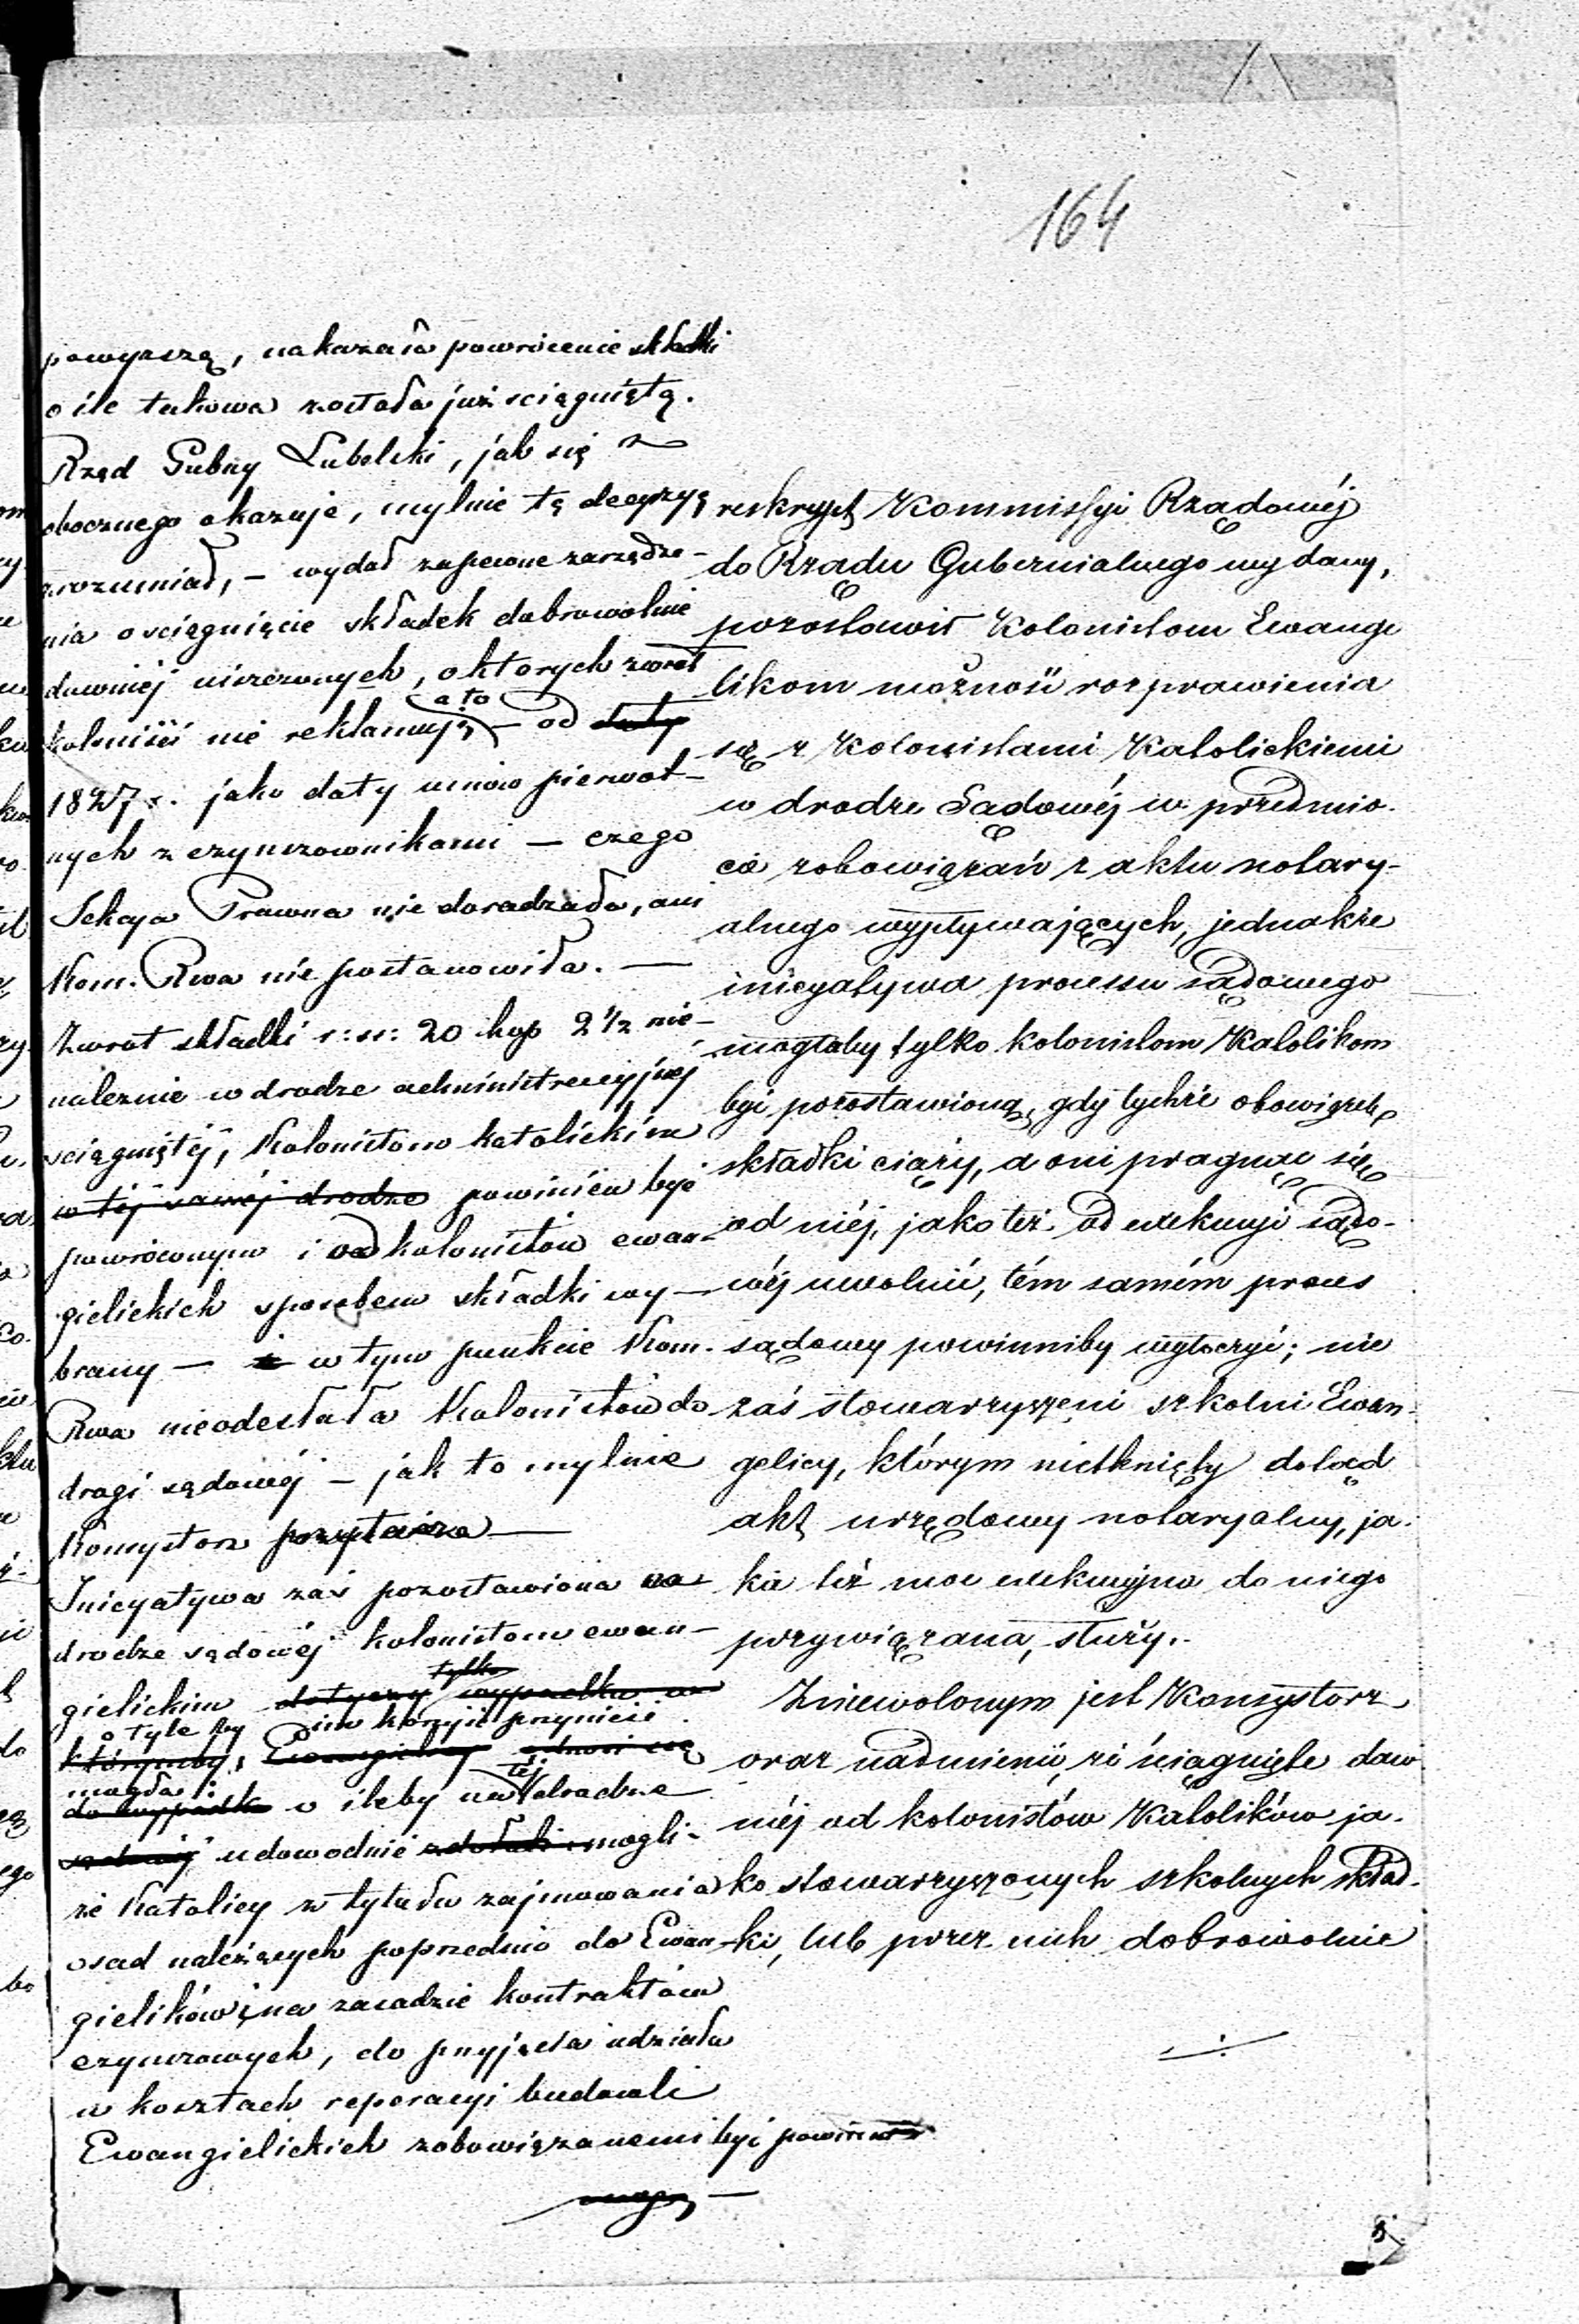 164
powyższą, nakazała powrócenie składki
o ile takowa została już sciągniętą.
Rząd Gubny Lubelski, jak się z
obocznego okazuje, mylnie tę decyzyę
zrozumiał, – wydał zapewne zarządze-
nia o sciągnięcie składek dobrowolnie
dawniej uiszczonych, o których zwrot
koloniści nie reklamują – a to od daty
1827 r. jako daty umów pierwot-
nych z czynszownikami – czego
Sekcya Prawna nie doradzała, ani
Kom. Rwa nie postanowiła. –
Zwrot składki r: sr: 20 kop 2 1/2 nie-
należnie w drodze administracyjnej
sciągniętej, Kolonistom katolickim
w tej samej drodze powinien być
powróconym i od kolonistów ewan-
gielickich sposobem składki wy-
brany – i w tym punkcie Kom.
Rwa nieodesłała Kolonistów do
drogi sądowej – jak to mylnie
Konsystorz przytacza –
Inicyatywa zaś pozostawiona na
drodze sądowej kolonistom ewan-
gielickim dotyczy tylko wypadku w
o tyle by im korzyść przynieść
którymby, Ewangielicy
mogła:
do wypadku o ileby na tej drodze
sądowej udowodnić zdołali mogli
że Katolicy z tytułu zajmowania
osad należących poprzednio do Ewan-
gielików i na zasadzie kontraktów
czynszowych, do przyjęcia udziału
w kosztach reperacyi budowli
Ewangielickich zobowiązanemi być powinni
mogą –
reskrypt Kommissyi Rządowéj
do Rządu Gubernialnego wydany,
pozostawił Kolonistom Ewange
likom możność rozprawienia
się z Kolonistami Katolickiemi
w drodze Sądowéj w przedmio-
cie zobowiązań z aktu notary-
alnego wypływających, jednakże
inicyatywa processu sądowego
mogłaby tylko kolonistom Katolikom
być pozostawioną, gdy tychże obowiązek
składki ciąży, a oni pragnąc się
od niéj, jako też od exekucyi sądo-
wéj uwolnić, tém samém proces
sądowy powinniby wytoczyć; nie
zaś stowarzyszeni szkolni Ewan-
gelicy, którym nietknięty dotąd
akt urzędowy notaryalny, ja-
ko też moc exekucyjna do niego
przywiązana, służy.
Zniewolonym jest Konsystorz
oraz nadmienić, że ściągnięte daw
niéj od kolonistów Katolików ja-
ko stowarzyszonych szkolnych skład-
ki, lub przez nich dobrowolnie